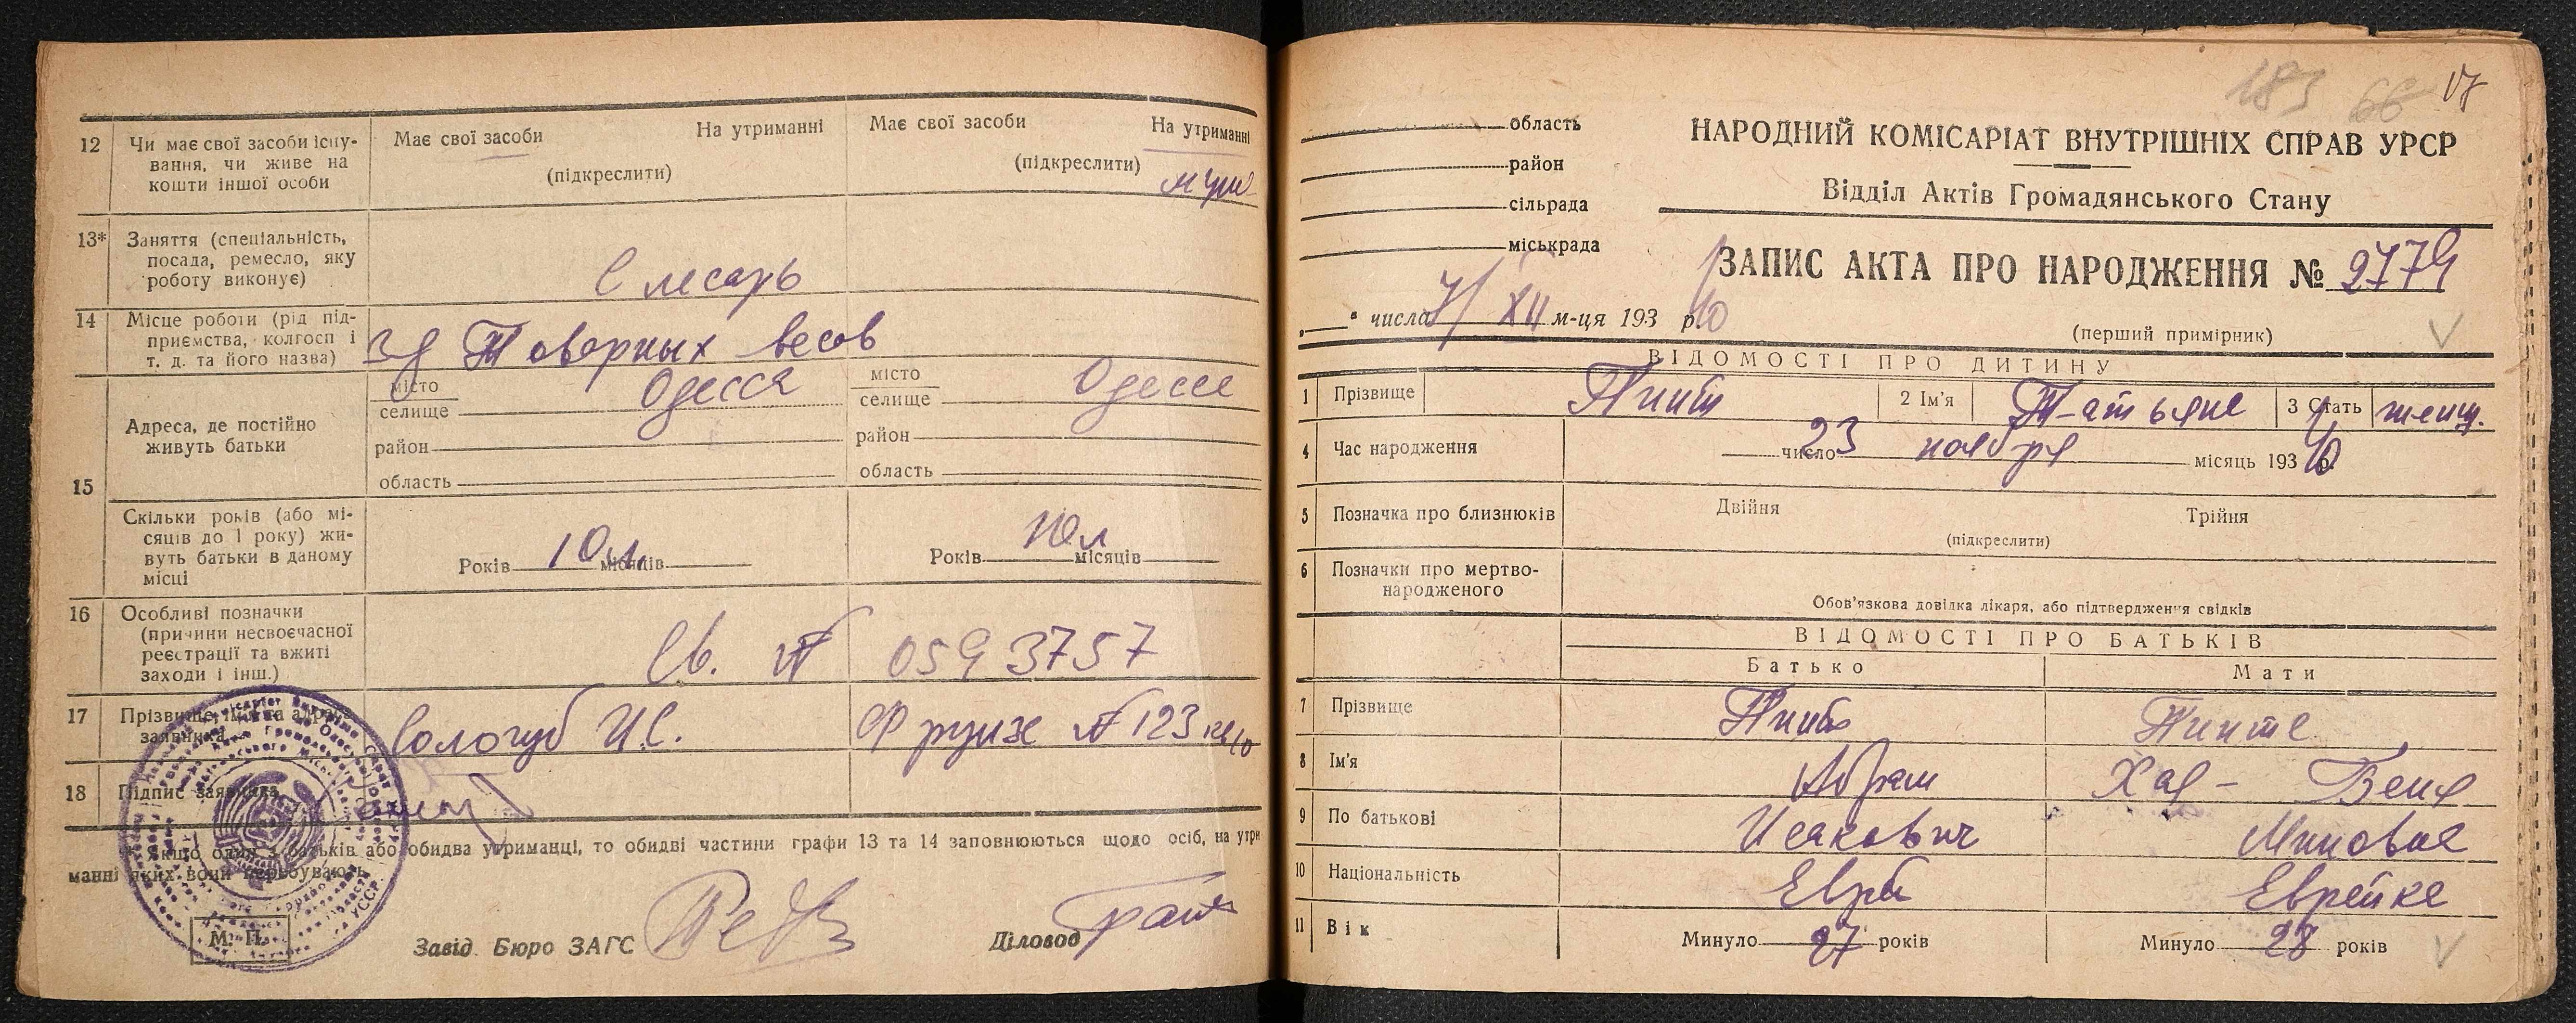 12 Чи має свої засоби існу-
вання, чи живе на
кошти іншої особи
Має свої засоби На утриманні
(підкреслити)
Має свої засоби На утриманні
(підкреслити)
муж
13* Заняття (спеціальність,
посада, ремесло, яку
роботу виконує)
Слесарь
14 Місце роботи (рід під-
приємства, колгосп і
т. д. та його назва)
зд Товарных весов
15 Адреса, де постійно
живуть батьки
місто Одесса
селище
район
область
місто Одесса
селище
район
область
Скільки років (або мі-
сяців до 1 року) жи-
вуть батьки в даному
місці
Років 10 л. місяців
Років 10 л місяців
16 Особливі позначки
(причини несвоєчасної
реєстрації та вжиті
заходи і інш.)
Св. № 0593757
17 Прізвище, ім'я та адреса
заявника
Сологуб И.С. Фрунзе № 123 кв 10
18 Підпис заявника
* Якщо один з батьків або обидва утриманці, то обидві частини графи 13 та 14 заповнюються щодо осіб, на утри
манні яких вони перебувають.
М. П.
Завід. Бюро ЗАГС
Діловод
183 66 17
область
район
сільрада
міськрада
НАРОДНИЙ КОМІСАРІАТ ВНУТРІШНІХ СПРАВ УРСР
Відділ Актів Громадянського Стану
ЗАПИС АКТА ПРО НАРОДЖЕННЯ № 2779
„ “ числа 7/XII м-ця 193 р. 40
(перший примірник)
ВІДОМОСТІ ПРО ДИТИНУ
1 Прізвище Пинт 2 Ім'я Татьяна 3 Стать женщ.
4 Час народження 23 число ноября місяць 193 40 р.
5 Позначка про близнюків Двійня Трійня
(підкреслити)
6 Позначки про мертво-
народженого
Обов'язкова довідка лікаря, або підтвердження свідків
ВІДОМОСТІ ПРО БАТЬКІВ
Батько Мати
7 Прізвище Пинт Пинте
8 Ім'я Абрам Хая- Беня
9 По батькові Исакович
10 Національність Еврей Еврейка
11 Вік Минуло 27 років Минуло 28 років